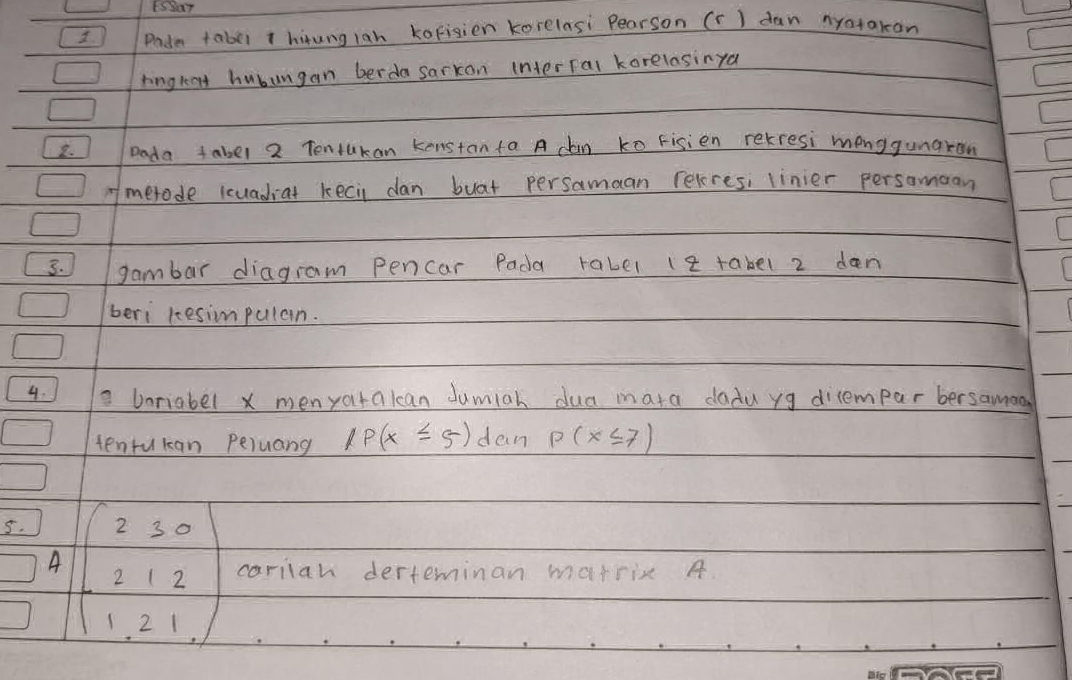 Essay
1. Pada tabel 1 hitunglah kofisien korelasi Pearson (r) dan nyatakan
tingkat hubungan berdasarkan interfal korelasinya
2. Pada tabel 2 Tentukan konstanta A dan kofisien rekresi menggunakan
metode kuadrat kecil dan buat persamaan rekresi linier persamaan
3. gambar diagram Pencar Pada tabel 1 & tabel 2 dan
beri kesimpulan.
4. Variabel x menyatakan Jumlah dua mata dadu yg dilempar bersamaan
tentukan Peluang P(x ≤ 5) dan P(x ≤ 7)
5. 2 3 0
A 2 1 2 carilah derteminan matrix A.
1 2 1
Big BOSS